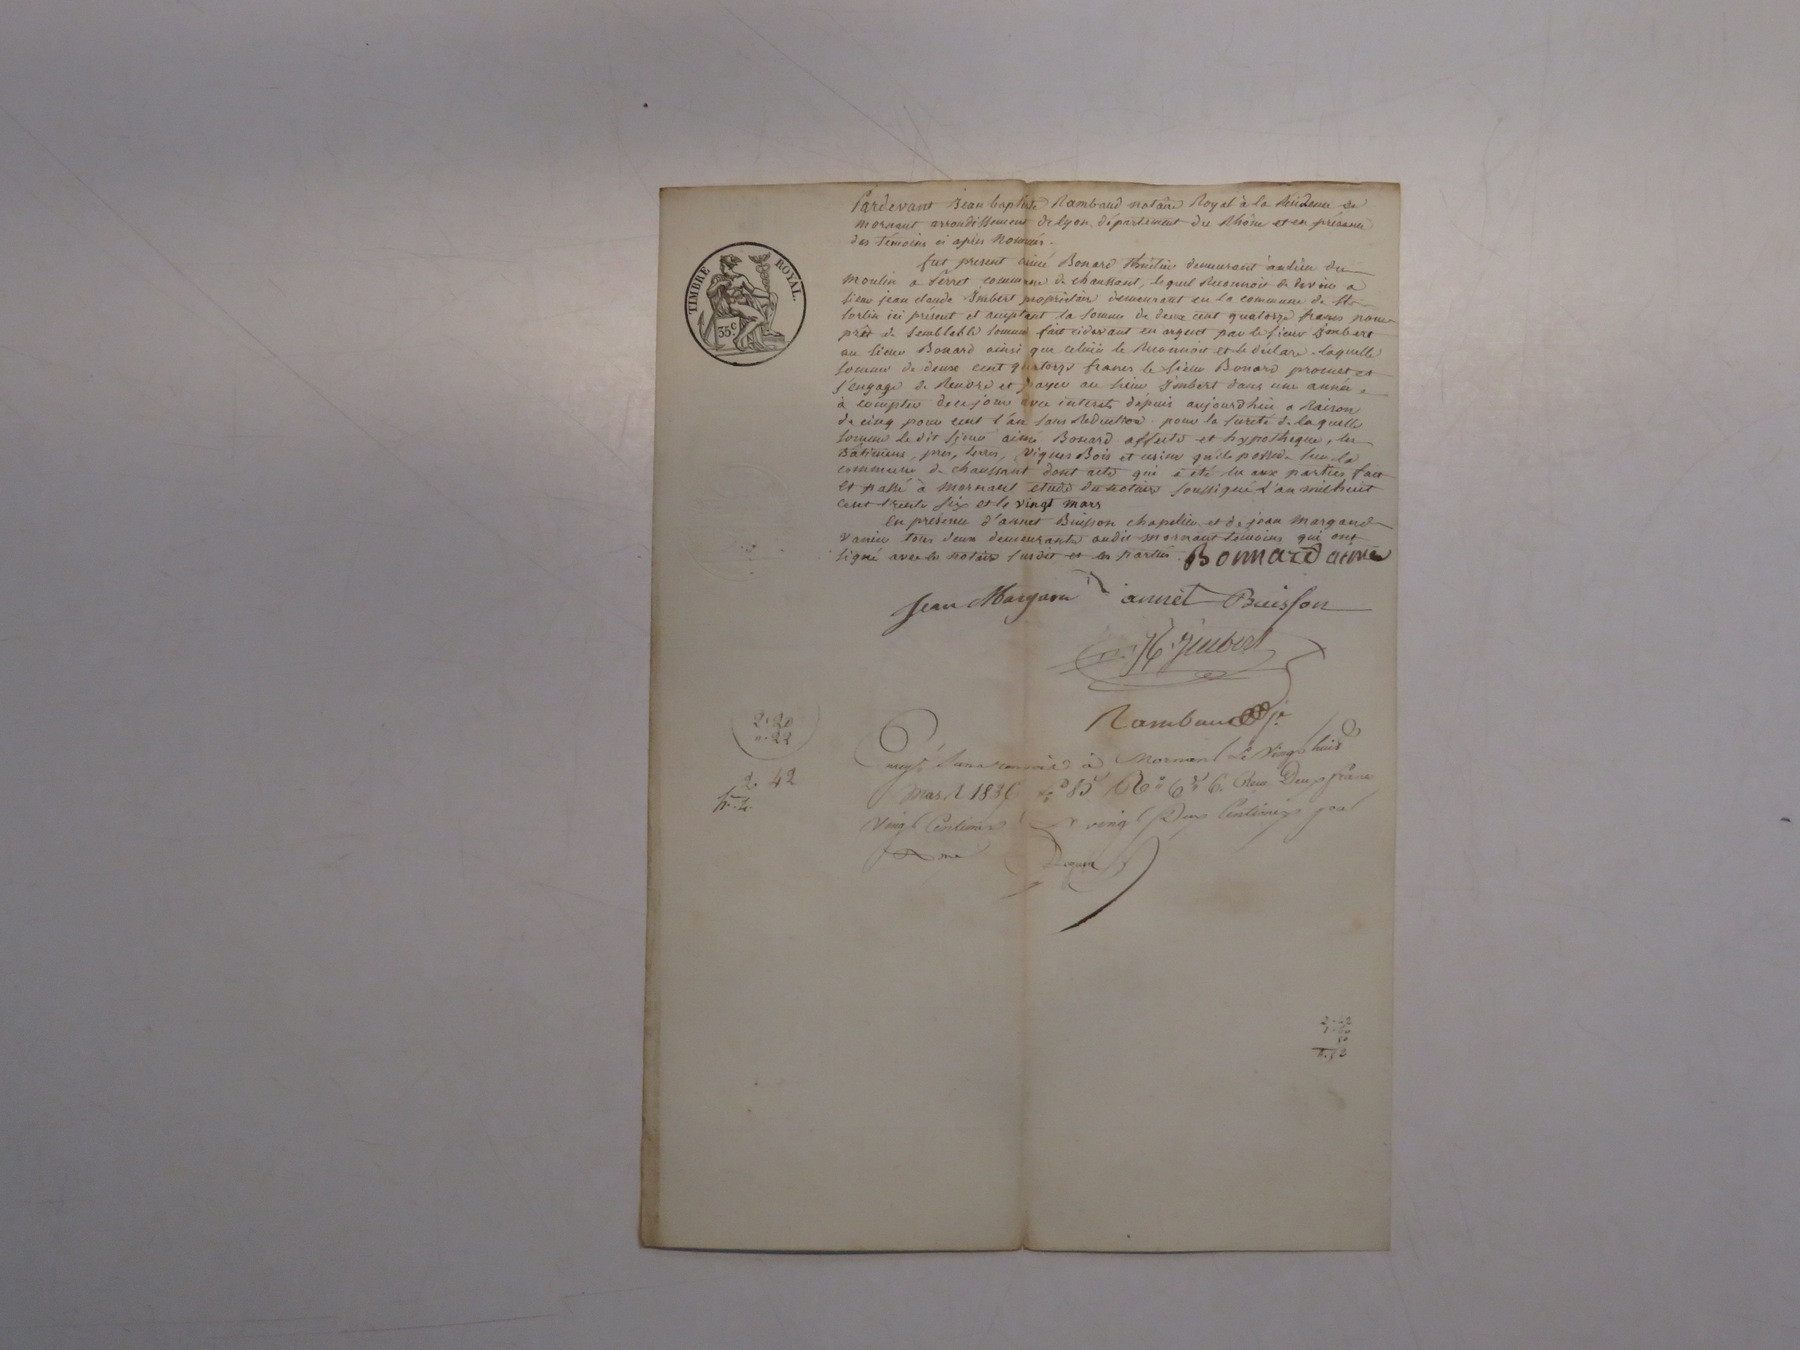 Pardevant Jean baptiste Rambaud notaire Royal à la Résidence de
mornant arrondissement de lyon département du Rhône et en présence
des témoins ci après Nommés.
TIMBRE ROYAL.
35 c
fut present aimé Bonard demeurant audieu du
Moulin a Perret commune de chaussant, lequel Reconnoit de devoir a
sieur jean claude Imbert propriétaire demeurant en la commune de St
sorlin ici present et acceptant la somme de deux cent quatorze francs pour
prêt de semblable somme fait cidevant en argent par le sieur Imbert
au sieur Bonard ainsi que celuici le Reconnoit et le déclare. laquelle
somme de deux cent quatorze francs le sieur Bonard promet et
s'engage de Rendre et payer au sieur Imbert dans une année
à compter de ce jour avec interets depuis aujourdhui a Raison
de cinq pour cent l'an sans Reduction. pour la sureté de laquelle
somme le dit sieur aimé Bonard affecte et hypotheque, les
Bâtimens, prés, terres, Vignes Bois et qu'il possede sur la
commune de chaussant dont acte qui a été lu aux parties fait
et passé à mornant etude du notaire soussigné l'an mil huit
cent trente six et le vingt mars
en présence d'annet Buisson chapelier et de jean margand
tous deux demeurants audit mornant témoins qui ont
signé avec le notaire susdit et les parties. Bonnard aimé
Jean Margand annet Buisson
Imbert
Rambaud
2. 20
". 22
2. 42
à Mornant Le vingt huit
Mars 1836 f° 85 R° C 6. Deux francs
vingt Centimes vingt Deux Centimes pour
2. 42